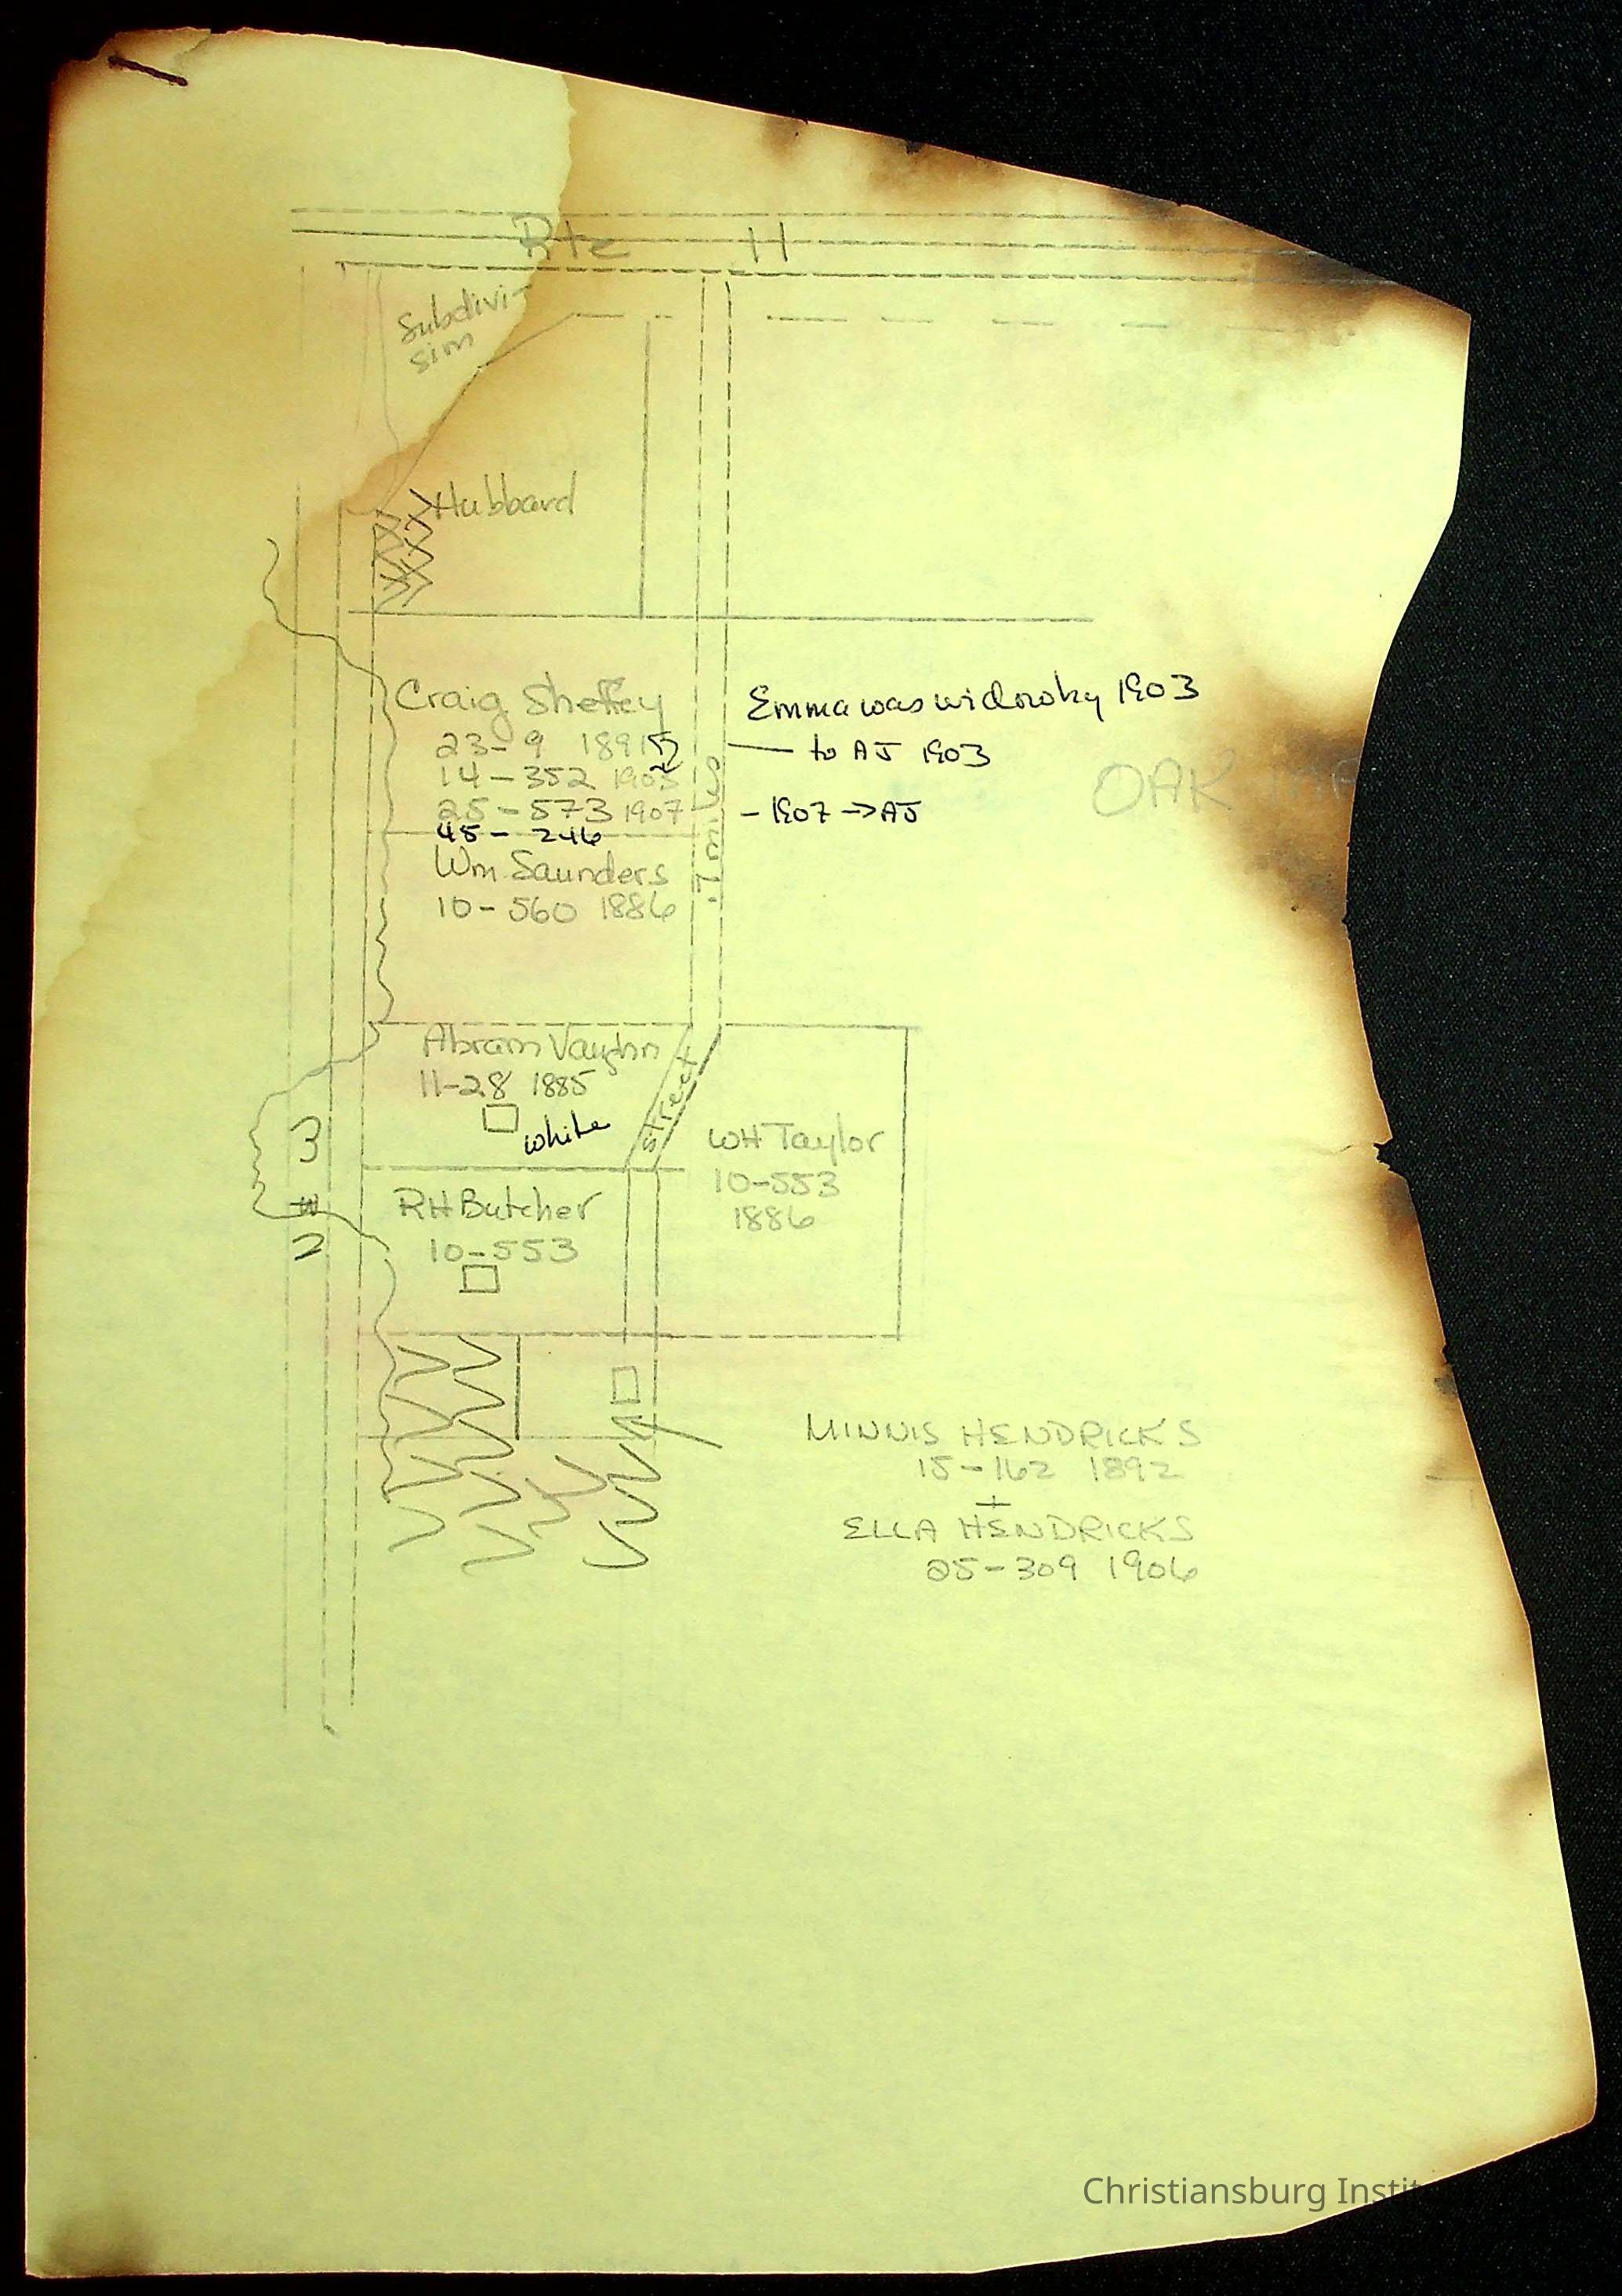 Rte 11
Subdivi-
sion
Hubbard
Craig Sheffey
23-9 1891
14-352 1903
25-573 1907
45-246
Emma was widow by 1903
to AJ 1903
-1907 → AJ
OAK
Wm Saunders
10-560 1886
Abram Vaughn
11-28 1885
white
street
WH Taylor
10-553
1886
RH Butcher
10-553
3
2
MINNIS HENDRICKS
15-162 1892
+
ELLA HENDRICKS
25-309 1906
Christiansburg